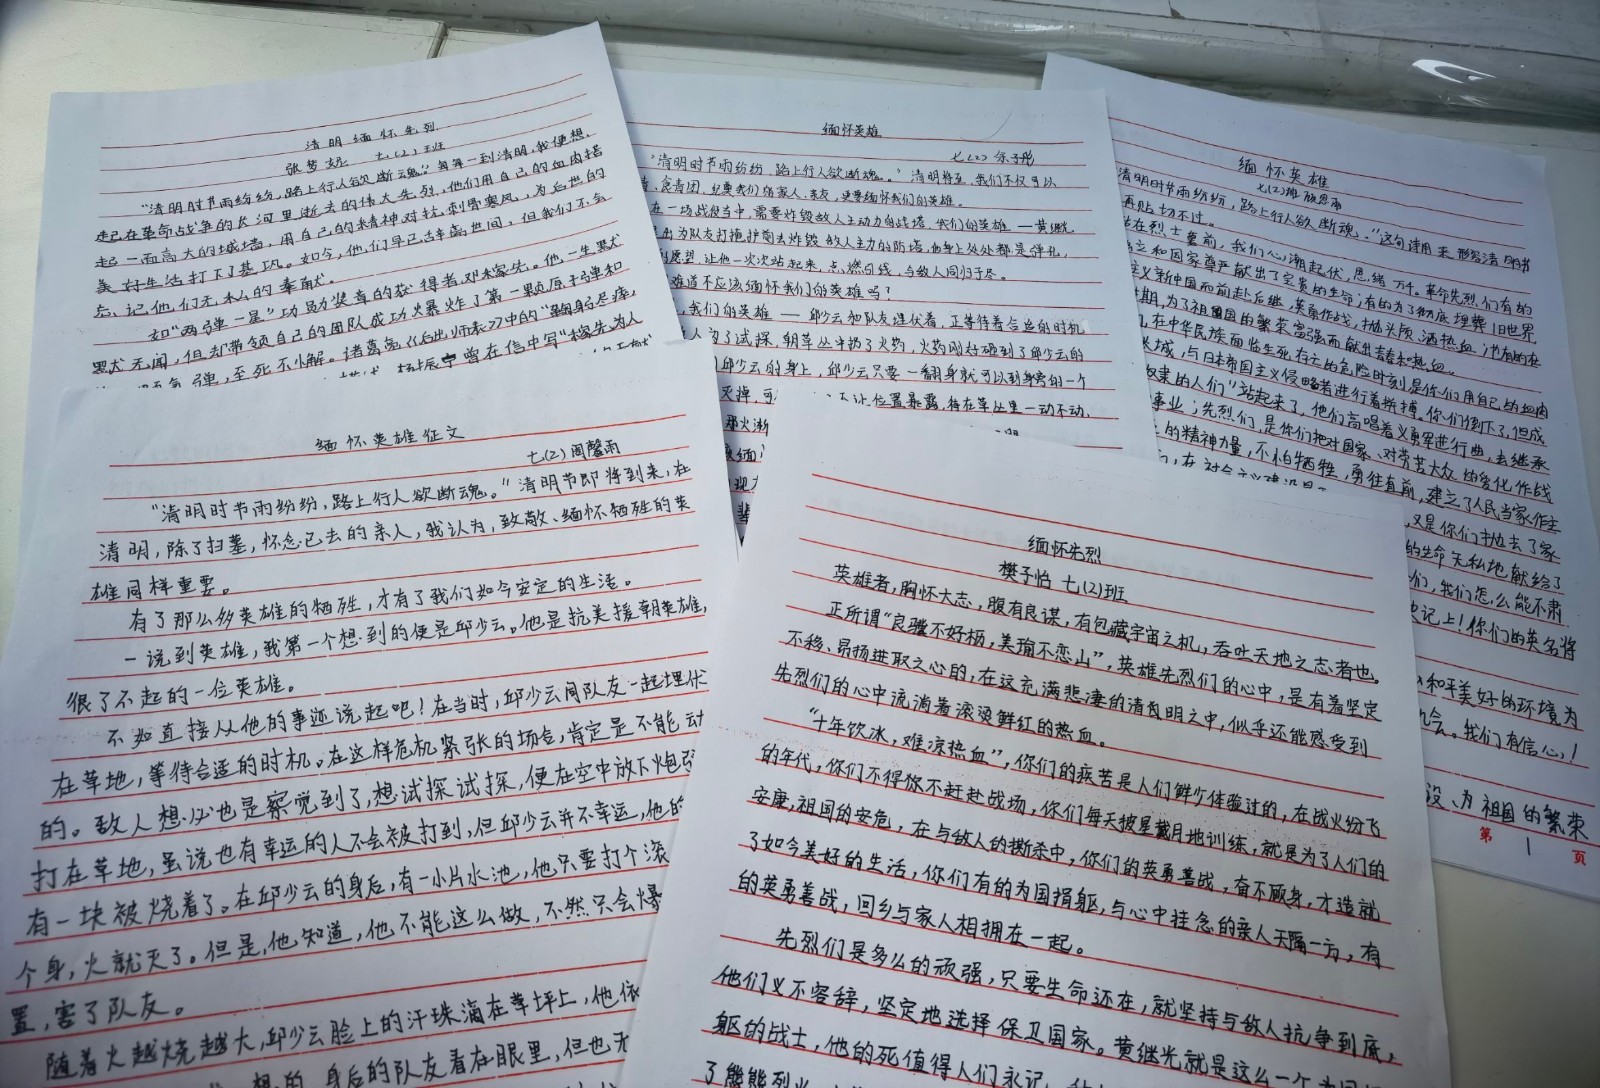 清明缅怀先烈
张梦妮 七(2)班
"清明时节雨纷纷,路上行人欲断魂。"每每一到清明,我便想
起在革命战争的长河里逝去的伟大先烈,他们用自己的血肉搭
起一面高大的城墙,用自己的精神对抗刺骨寒风,为后世的
美好生活打下了基巩。如今,他们早已去离世间,但我们不会
忘记他们无私的奉献。
如"两弹一星"功勋奖章的获得者邓稼先。他一生默
默无闻,但却带领自己的团队成功火暴炸了第一颗原子弹和
弹,至死不懈。诸葛亮《后出师表》中的"鞠躬尽瘁,
杨振宁曾在信中写"稼先为人
缅怀英雄
七(2) 徐子彤
"清明时节雨纷纷,路上行人欲断魂。"清明将至,我们不仅可以
、食青团,更要缅怀我们的英雄。
在一场战役当中,需要炸毁敌人主动力的战塔,我们的英雄——黄继
出为队友打掩护前去炸毁敌人主力的防塔,他身上处处都是弹孔,
愿望,让他一次次站起来,点燃引线,与敌人同归于尽。
难道不应该缅怀我们的英雄吗?
我们的英雄——邱少云和队友埋伏着,正等待着合适的时机
人为了试探,朝草丛中扔了火药,火药刚好砸到了邱少云的
邱少云的身上,邱少云只要一翻身就可以到身旁的一个
灭掉,可
不让位置暴露,待在草丛里一动不动,
那火渐
缅怀英雄
七(2)班
清明时节雨纷纷,路上行人欲断魂."这句诗用来形容清明节
再贴切不过。
在烈士墓前,我们心潮起伏,思绪万千。革命先烈们有的
立和国家尊严献出了宝贵的生命;有的为了彻底埋葬旧世界,
主义新中国而前赴后继,英勇作战,抛头颅、洒热血;也有的在
期,为了祖国的繁荣富强而献出青春和热血。
在中华民族面临生死存亡的危险时刻是你们用自己的血肉
长城,与日本帝国主义侵略者进行着拼搏。你们倒下了,但成
奴隶的人们"站起来了,他们高唱着义勇军进行曲,去继承
事业;先烈们,是你们把对国家、对劳苦大众的爱化作战
的精神力量,不怕牺牲,勇往直前,建立了人民当家作主
在社会主义建设
又是你们抛去了家
的生命无私地献给了
们,我们怎么能不肃
史记上!你们的英名将
和平美好的环境为
会。我们有信心,!
设、为祖国的繁荣
第 1 页
缅怀英雄征文
七(2) 周馨雨
"清明时节雨纷纷,路上行人欲断魂。"清明节即将到来,在
清明,除了扫墓,怀念已去的亲人,我认为,致敬、缅怀牺牲的英
雄同样重要。
有了那么多英雄的牺牲,才有了我们如今安定的生活。
一说到英雄,我第一个想到的便是邱少云。他是抗美援朝英雄,
很了不起的一位英雄。
不如直接从他的事迹说起吧!在当时,邱少云同队友一起埋伏
在草地,等待合适的时机。在这样危机紧张的场合,肯定是不能动
的。敌人想必也是察觉到了,想试探试探,便在空中放下炮弹
打在草地,虽说也有幸运的人不会被打到,但邱少云并不幸运,他的
有一块被烧着了。在邱少云的身后,有一小片水池,他只要打个滚
个身,火就灭了。但是,他知道,他不能这么做,不然只会爆
置,害了队友。
随着火越烧越大,邱少云脸上的汗珠滴在草坪上,他依
想的,身后的队友看在眼里,但也无
缅怀先烈
樊予怡 七(2)班
英雄者,胸怀大志,腹有良谋,有包藏宇宙之机,吞吐天地之志者也。
正所谓"良骥不好枥,美瑜不恋山",英雄先烈们的心中,是有着坚定
不移、昂扬进取之心的,在这充满悲凄的清明之中,似乎还能感受到
先烈们的心中流淌着滚烫鲜红的热血。
"十年饮冰,难凉热血",你们的疾苦是人们鲜少体验过的,在战火纷飞
的年代,你们不得你不赶赴战场,你们每天披星戴月地训练,就是为了人们的
安康,祖国的安危,在与敌人的撕杀中,你们的英勇善战,奋不顾身,才造就
了如今美好的生活,你们有的为国捐躯,与心中挂念的亲人天隔一方,有
的英勇善战,回乡与家人相拥在一起。
先烈们是多么的顽强,只要生命还在,就坚持与敌人抗争到底,
他们义不容辞,坚定地选择保卫国家。黄继光就是这么一个为国捐
躯的战士,他的死值得人们永记,
了熊熊烈火